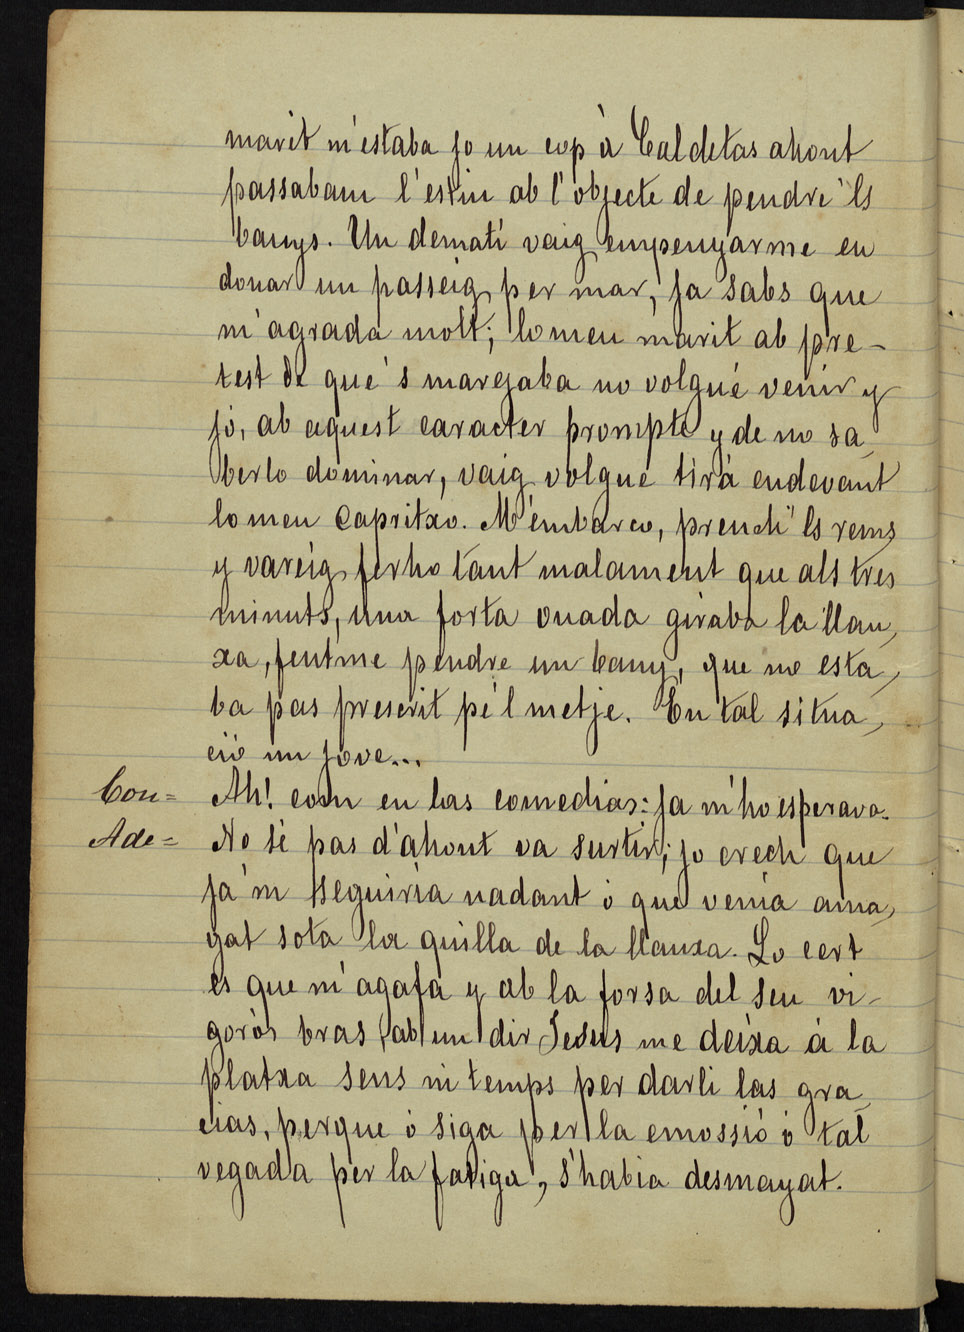 marit m'estaba jo un cop à Caldetas ahont
passabam l'estiu ab l'objecte de pendre 'ls
banys. Un demati vaig empenyarme en
donar un passeig per mar, ja sabs que
m'agrada molt; lo meu marit ab pre-
test de que 's marejaba no volgué venir y
jó, ab aquest caracter prompte y de no sa-
berlo dominar, vaig volgue tirá endevant
lo meu capritxo. M'embarco, prench 'ls rems
y vareig ferho tant malament que als tres
minuts, una forta onada giraba la llan-
xa, fentme pendre un bany, que no esta-
ba pas prescrit pe'l metje. En tal situa-
ció un jove...
Con= Ah! com en las comedias: ja m'ho esperava.
Ade= No sé pas d'ahont va surtir; jo crech que
ja'm seguiria nadant ó que venia ama-
gat sota la quilla de la llanxa. Lo cert
es que m'agafa y ab la forsa del seu vi-
gorós bras ab un dir Jesus me deixa á la
platxa sens ni temps per darli las gra-
cias, perque ó siga per la emossió ó tal
vegada per la fatiga, s'habia desmayat.